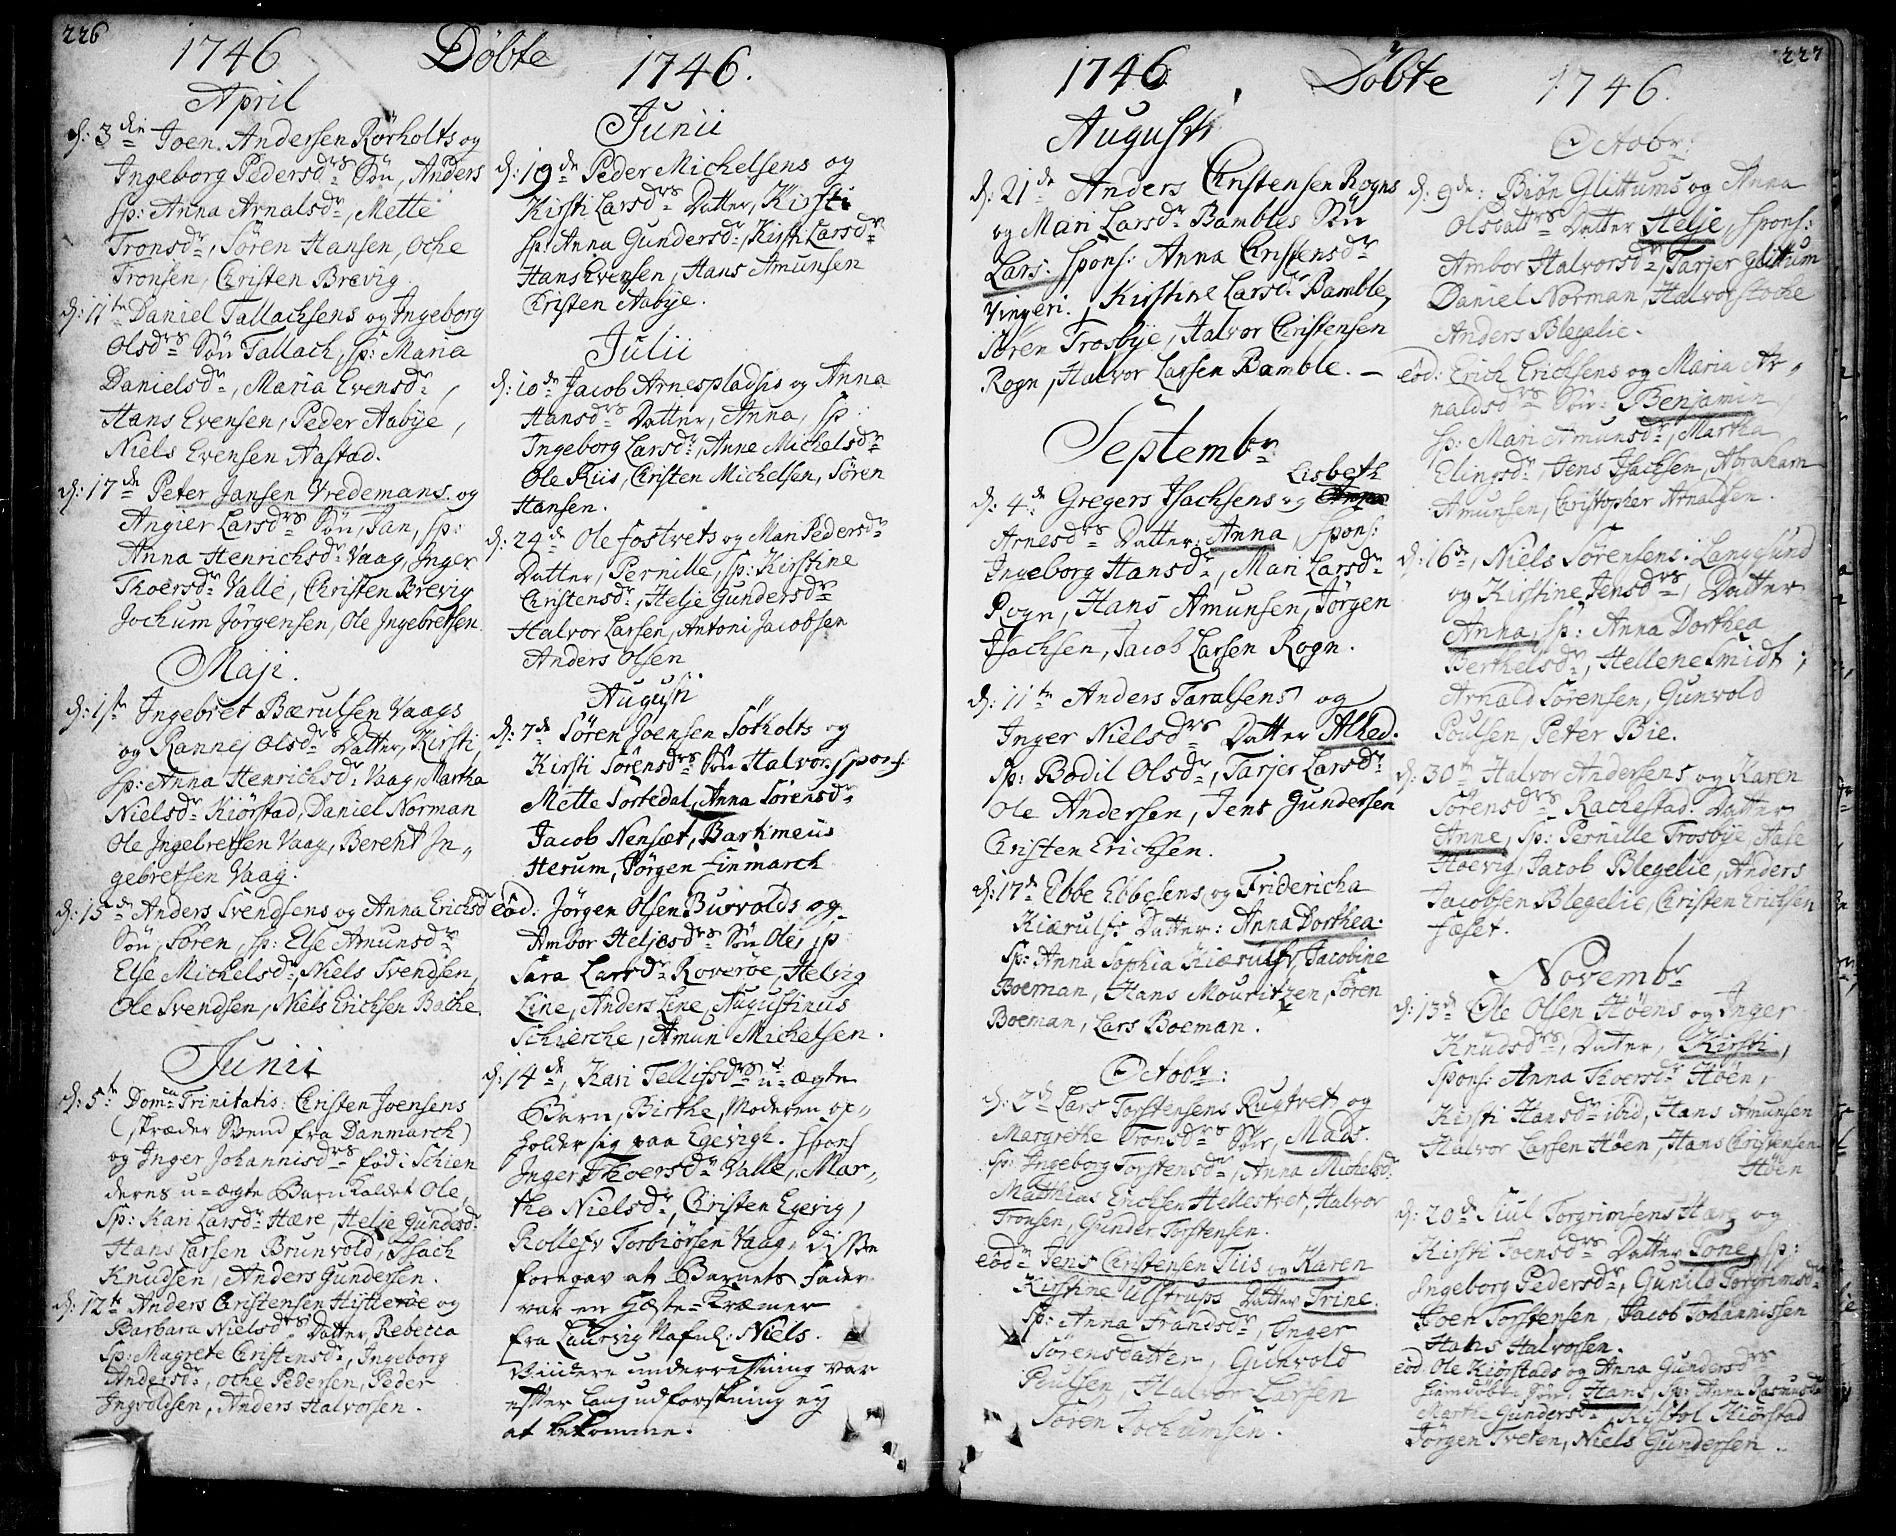 226
1746 Döbte
April
d: 3die Joen Andersen Rörholts og
Ingeborg Pedersdrs Sön, Anders
Sp: Anna Arnalsdr, Mette
Tronsdr, Sören Hansen, Oche
Tronsen, Christen Brevig
d: 11te Daniel Tallachsens og Ingeborg
Olsdrs Sön Tallach, Sp: Maria
Danielsdr, Maria Evensdr,
Hans Evensen, Peder Aabÿe,
Niels Evensen Aastad.
d: 17de Peter Jansen Vredemans og
Angier Larsdrs Sön, Jan, Sp:
Anna Henrichsdr Vaag, Inger
Thoersdr Valle, Christen Brevig
Jochum Jörgensen, Ole Ingebretsen
Maji.
d: 1ste Ingebret Bærulsen Vaags
og Rannej Olsdrs Datter, Kirsti,
Sp: Anna Henrichsdr Vaag, Martha
Nielsdr Kiörstad, Daniel Norman
Ole Ingebretsen Vaag, Berent In-
gebretsen Vaag.
d: 15de Anders Svendsens og Anna Ericksdr
Sön, Sören, Sp: Else Amunsdr
Else Michelsdr, Niels Svendsen,
Ole Svendsen, Niels Ericksen Bache.
Junii
d: 5te Domca Trinitatis: Christen Joensens
(skræder Svend fra Danmarch)
og Inger Johannisdrs född i Schien
deres u-ægte Barn kaldet Ole,
Sp: Kari Larsdr Hære, Helje Gundersdr
Hans Larsen Brunvold, Isach
Knudsen, Anders Gundersen.
d: 12te Anders Christensen Hifteröe og
Barbara Nielsdrs Datter, Rebecca
Sp: Magrete Christensdr, Ingeborg
Andersdr, Oche Pedersen, Peder
Ingvoldsen, Anders Halvorsen.
1746.
Junii
d: 19de Peder Michelsens og
Kirsti Larsdrs Datter, Kirsti
Sp: Anna Gundersdr, Kirsti Larsdr
Hans Evensen, Hans Amunsen
Christen Aabÿe.
Julii
d: 10de Jacob Arnespladsis og Anna
Hansdrs Datter, Anna, Sp:
Ingeborg Larsdr, Anne Michelsdr
Ole Riis, Christen Michelsen, Sören
Hansen.
d: 24de Ole Fostvets og Mari Pedersdr
Datter, Pernille, Sp: Kirstine
Christensdr, Helje Gundersdr
Halvor Larsen, Antoni Jacobsen
Anders Olsen
Augusti
d: 7de Sören Joensen Sötholts og
Kirsti Sörensdrs Sön Halvor, Spons
Mette Sortedal, Anna Sörensdr
Jacob Nensæt, Bartimeus
Herum, Jörgen Finmarch
eod: Jörgen Olsen Burvolds og
Ambor Heljesdrs Sön Ole, Sp:
Sara Larsdr Roveröe, Helvig
Line, Anders Line, Augustinus
Schierche, Amun Michelsen.
d: 14de, Kari Tellifsdrs u-ægte
Barn, Birthe, Moderen op-
holder sig paa Egevigh. Spons
Inger Thoersdr Valle, Mar-
the Nielsdr, Christen Egevig,
Rollef Torbiörsen Vaag, disse
foregav at Barnets Fader
var en Heste-Kræmer
fra Laurvig Nafnl: Niels.
Videre underretning var
efter lang udforskning ej
at bekomme.
1746 Döbte
Augusti
d: 21de Anders Christensen Rogns
og Mari Larsdr Bambles Sön
Lars. Spons: Anna Christensdr
Vingeri, Kirstine Larsdr Bamble,
Sören Trosbÿe, Halvor Christensen
Rogn, Halvor Larsen Bamble. -
Septembr
Lisbeth
d: 4de Gregers Isachsens og
Arnesdrs Datter: Anna, Spons:
Ingeborg Hansdr, Mari Larsdr
Rogn, Hans Amunsen, Jörgen
Isachsen, Jacob Larsen Rogn.
d: 11te Anders Taralsens og
Inger Nielsdrs Datter Alhed.
Sp: Bodil Olsdr, Tarjer Larsdr
Ole Andersen, Jens Gundersen
Christen Erichsen.
d: 17de Ebbe Ebbesens og Fridericha
Kiærulfs Datter: Anna Dorthea.
Sp: Anna Sophia Kiærulf, Jacobine
Boeman, Hans Mouritzen, Sören
Boeman, Lars Boeman.
Octobr:
d: 2de Lars Torstensens Rugtvet og
Margrethe Tronsdrs Sön, Mads.
Sp: Ingeborg Torstensdr, Anna Michelsdr
Matthias Ericksen Hellestvet, Halvor
Tronsen, Gunder Torstensen.
eodm Jens Christensen Tiis og Karen
Kirstine Ulstrups Datter Trine.
Sp: Anna Frandsdr, Inger
Sörensdatter, Gunvold
Poulsen, Halvor Larsen
Sören Jochumsen.
227
1746.
Octobr:
d: 9de: Biön Glittums og Anna
Olsdattrs Datter Helje, Spons:
Ambor Halvorsdr, Tarjer Glittum
Daniel Norman, Halvor Stoche
Anders Blegelie.
eod: Erich Erichsens og Maria Ar-
naldsdrs Sön: Benjamin,
Sp: Mari Amunsdr, Martha
Elingsdr, Jens Isachsen, Abraham
Amunsen, Christopher Arnaldsen
d: 16de, Niels Sörensens: Langesund
og Kirstine Jensdrs, Datter
Anna, Sp: Anna Dorthea
Berthelsdr, Hellene Smidt,
Arnald Sörensen, Gunvold
Poulsen Peter Bie.
d: 30te Halvor Andersens og Karen
Sörensdrs Rachestad Datter
Anne, Sp: Pernille Trosbÿe, Aase
Hoevig, Jacob Blegelie, Anders
Jacobsen Blegelie, Christen Erichsen
Feset.
Novembr
d: 13de Ole Olsen Höens og Inger
Knudsdrs, Datter, Kirsti,
Spons: Anna Thoersdr Höen,
Kirsti Hansdr ibid, Hans Amunsen
Halvor Larsen Höen, Hans Christensen
Höen
d: 20de Siul Torgrimsens Hære og
Kirsti Joensdrs Datter Tone, Sp:
Ingeborg Pedersdr, Gunild Torgrimsdr
Joen Torstensen, Jacob Johannissen
Hans Halvorsen.
eod: Ole Kiörstads og Anna Gundersdrs
hiemdöbte Sön, Hans, Sp: Anna Rasmusdr
Marthe Gundersdr, Kistol Kiörstad
Jörgen Tveten, Niels Gundersen.